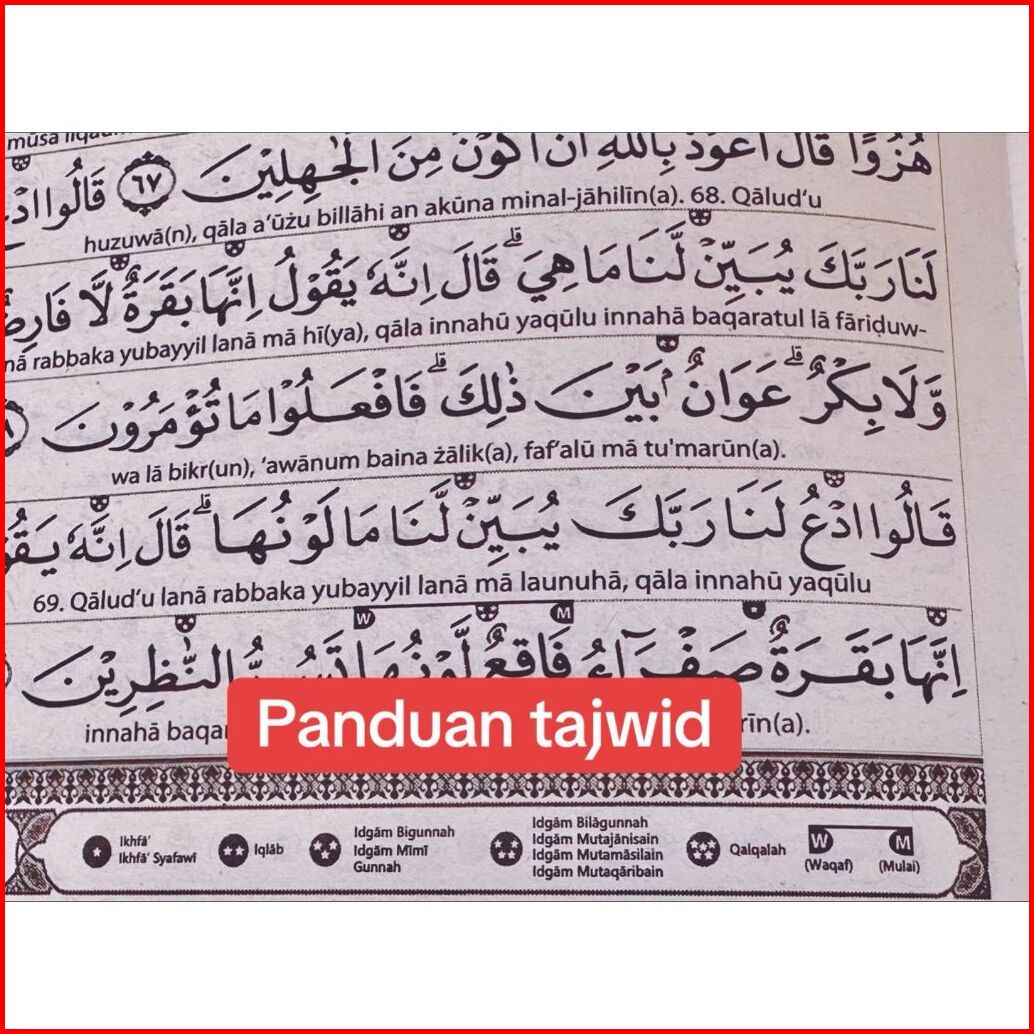 mūsā liqaum
هُزُوًا ۗ قَالَ اَعُوْذُ بِاللّٰهِ اَنْ اَكُوْنَ مِنَ الْجٰهِلِيْنَ ٦٧ قَالُوا ادْعُ
huzuwā(n), qāla a‘ūżu billāhi an akūna minal-jāhilīn(a). 68. Qālud‘u
لَنَا رَبَّكَ يُبَيِّنْ لَّنَا مَا هِيَ ۗ قَالَ اِنَّهٗ يَقُوْلُ اِنَّهَا بَقَرَةٌ لَّا فَارِضٌ
nā rabbaka yubayyil lanā mā hī(ya), qāla innahū yaqūlu innahā baqaratul lā fāriḍuw-
وَّلَا بِكْرٌ ۗ عَوَانٌۢ بَيْنَ ذٰلِكَ ۗ فَافْعَلُوْا مَا تُؤْمَرُوْنَ
wa lā bikr(un), ‘awānum baina żālik(a), faf‘alū mā tu'marūn(a).
قَالُوا ادْعُ لَنَا رَبَّكَ يُبَيِّنْ لَّنَا مَا لَوْنُهَا ۗ قَالَ اِنَّهٗ يَقُوْ
69. Qālud‘u lanā rabbaka yubayyil lanā mā launuhā, qāla innahū yaqūlu
W M
اِنَّهَا بَقَرَةٌ صَفْرَاۤءُ فَاقِعٌ لَّوْنُهَا تَسُرُّ النّٰظِرِيْنَ
innahā baqa rīn(a).
Panduan tajwid
Ikhfā’
Ikhfā’ Syafawī
Iqlāb
Idgām Bigunnah
Idgām Mīmī
Gunnah
Idgām Bilāgunnah
Idgām Mutajānisain
Idgām Mutamāsilain
Idgām Mutaqāribain
Qalqalah
W
(Waqaf)
M
(Mulai)